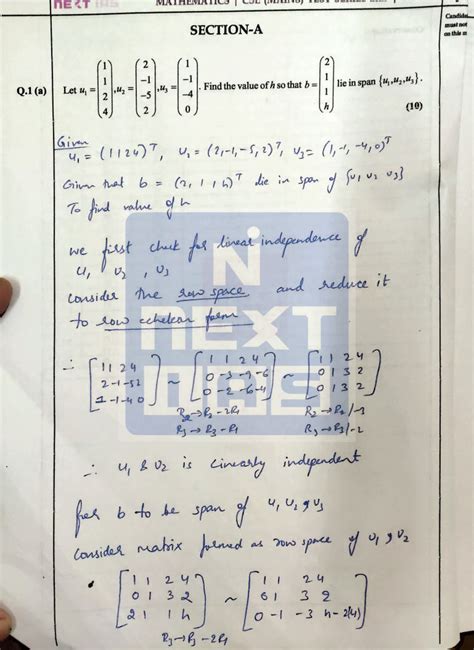 NEXT IAS
MATHEMATICS | CSE (MAINS) TEST SERIES
Candida
must not
on this m
SECTION-A
Q.1 (a) Let u₁ = (1 1 2 4), u₂ = (2 -1 -5 2), u₃ = (1 -1 -4 0). Find the value of h so that b = (2 1 1 h) lie in span {u₁,u₂,u₃}.
(10)
Given
u₁ = (1 1 2 4)ᵀ, u₂ = (2,-1,-5,2)ᵀ, u₃ = (1,-1,-4,0)ᵀ
Given that b = (2, 1, 1 h)ᵀ lie in span of {u₁ u₂ u₃}
To find value of h
we first check for linear independence of
u₁, u₂, u₃
Consider the row space and reduce it
to row echelon form
∴ [1 1 2 4; 2 -1 -5 2; 1 -1 -4 0] ~ [1 1 2 4; 0 -3 -9 -6; 0 -2 -6 -4] ~ [1 1 2 4; 0 1 3 2; 0 1 3 2]
R₂→R₂-2R₁ R₂→R₂/-3
R₃→R₃-R₁ R₃→R₃/-2
∴ u₁ & u₂ is linearly independent
for b to be span of u₁ u₂ & u₃
Consider matrix formed as row space of u₁ & u₂
[1 1 2 4; 0 1 3 2; 2 1 1 h] ~ [1 1 2 4; 0 1 3 2; 0 -1 -3 h-2(4)]
R₃→R₃-2R₁
NEXT IAS